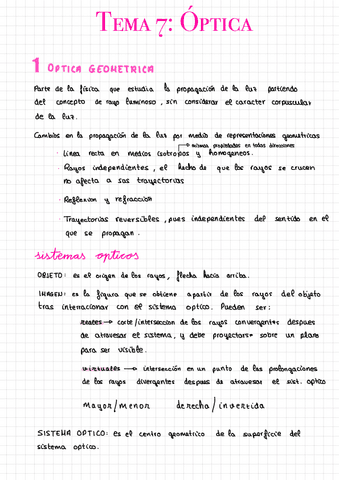 TEMA 7: ÓPTICA
1 OPTICA GEOMETRICA
Parte de la física que estudia la propagación de la luz partiendo
del concepto de rayo luminoso, sin considerar el caracter corpuscular
de la luz.
Cambios en la propagación de la luz por medio de representaciones geometricas
→ mismas propiedades en todas direcciones
· Linea recta en medios isotropos y homogeneos.
· Rayos independientes, el hecho de que los rayos se crucen
no afecta a sus trayectorias
· Reflexion y refracción
· Trayectorias reversibles, pues independientes del sentido en el
que se propagan.
sistemas opticos
OBJETO: es el origen de los rayos, flecha hacia arriba.
IMAGEN: es la figura que se obtiene a partir de los rayos del objeto
tras interaccionar con el sistema optico. Pueden ser:
reales → corte/interseccion de los rayos convergentes despues
de atravesar el sistema, y debe proyectarse sobre un plano
para ser visible.
virtuales → intersección en un punto de las prolongaciones
de los rayos divergentes despues de atravesar el sist. optico
mayor/menor derecha/invertida
SISTEMA OPTICO: es el centro geometrico de la superficie del
sistema optico.